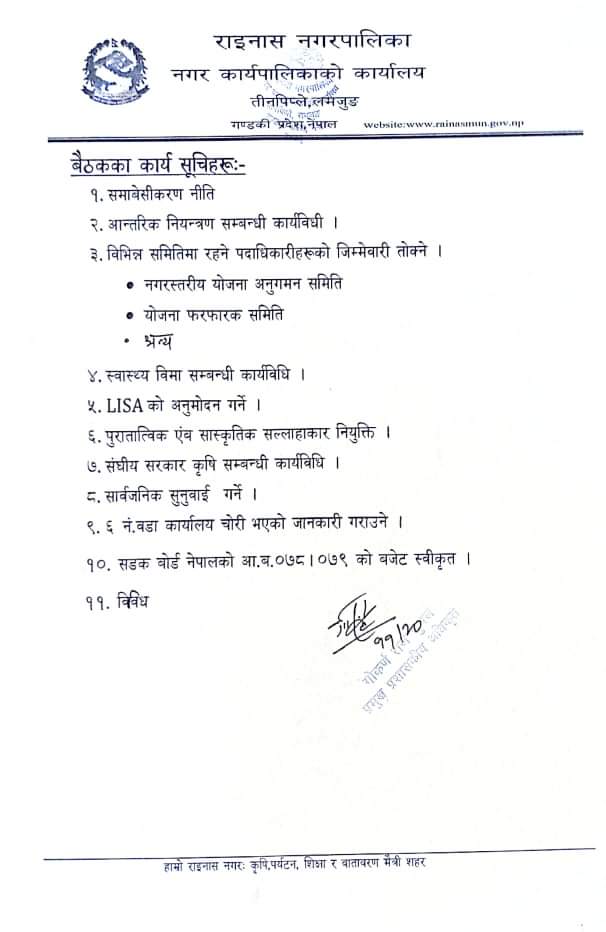 राइनास नगरपालिका
नगर कार्यपालिकाको कार्यालय
तीनपिप्ले,लमजुङ
गण्डकी प्रदेश,नेपाल website:www.rainasmun.gov.np
बैठकका कार्य सूचिहरू:-
१. समाबेसीकरण नीति
२. आन्तरिक नियन्त्रण सम्बन्धी कार्यविधी ।
३. विभिन्न समितिमा रहने पदाधिकारीहरूको जिम्मेवारी तोक्ने ।
• नगरस्तरीय योजना अनुगमन समिति
• योजना फरफारक समिति
• अन्य
४. स्वास्थ्य विमा सम्बन्धी कार्यविधि ।
५. LISA को अनुमोदन गर्ने ।
६. पुरातात्विक एंव सास्कृतिक सल्लाहाकार नियुक्ति ।
७. संघीय सरकार कृषि सम्बन्धी कार्यविधि ।
८. सार्वजनिक सुनुवाई गर्ने ।
९. ६ नं.वडा कार्यालय चोरी भएको जानकारी गराउने ।
१०. सडक बोर्ड नेपालको आ.ब.०७८।०७९ को बजेट स्वीकृत ।
११. विविध
११/२०
गोकर्ण
प्रमुख प्रशासकीय अधिकृत
हाम्रो राइनास नगरः कृषि,पर्यटन, शिक्षा र वातावरण मैत्री शहर